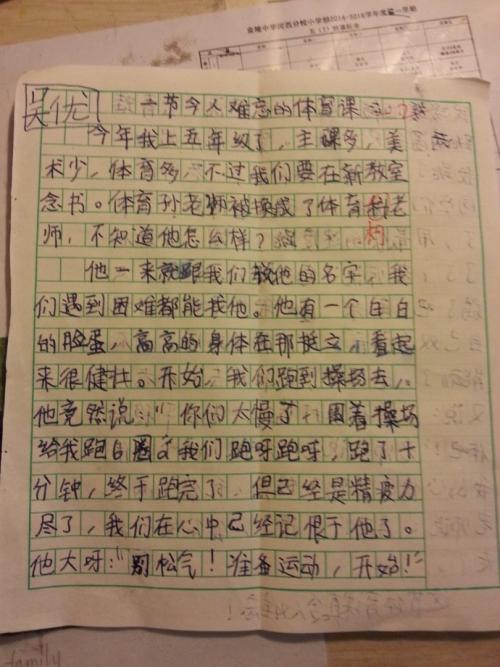 金陵中学河西分校小学部2014-2015学年度第一学期
吴优 一节令人难忘的体育课
今年我上五年级了，主课多，美
术少，体育多，不过我们要在新教室
念书。体育孙老师被换成了体育老
师，不知道他怎么样？
他一来就跟我们说他的名字，我
们遇到困难都能找他。他有一个白白
的脸蛋，高高的身体在那挺立，看起
来很健壮。开始，我们跑到操场去，
他竟然说：“你们太慢了，围着操场
给我跑6圈”我们跑呀跑呀，跑了十
分钟，终于跑完了，但已经是精疲力
尽了，我们在心中已经记恨于他了。
他大呀：“别松气！准备运动，开始！”
family